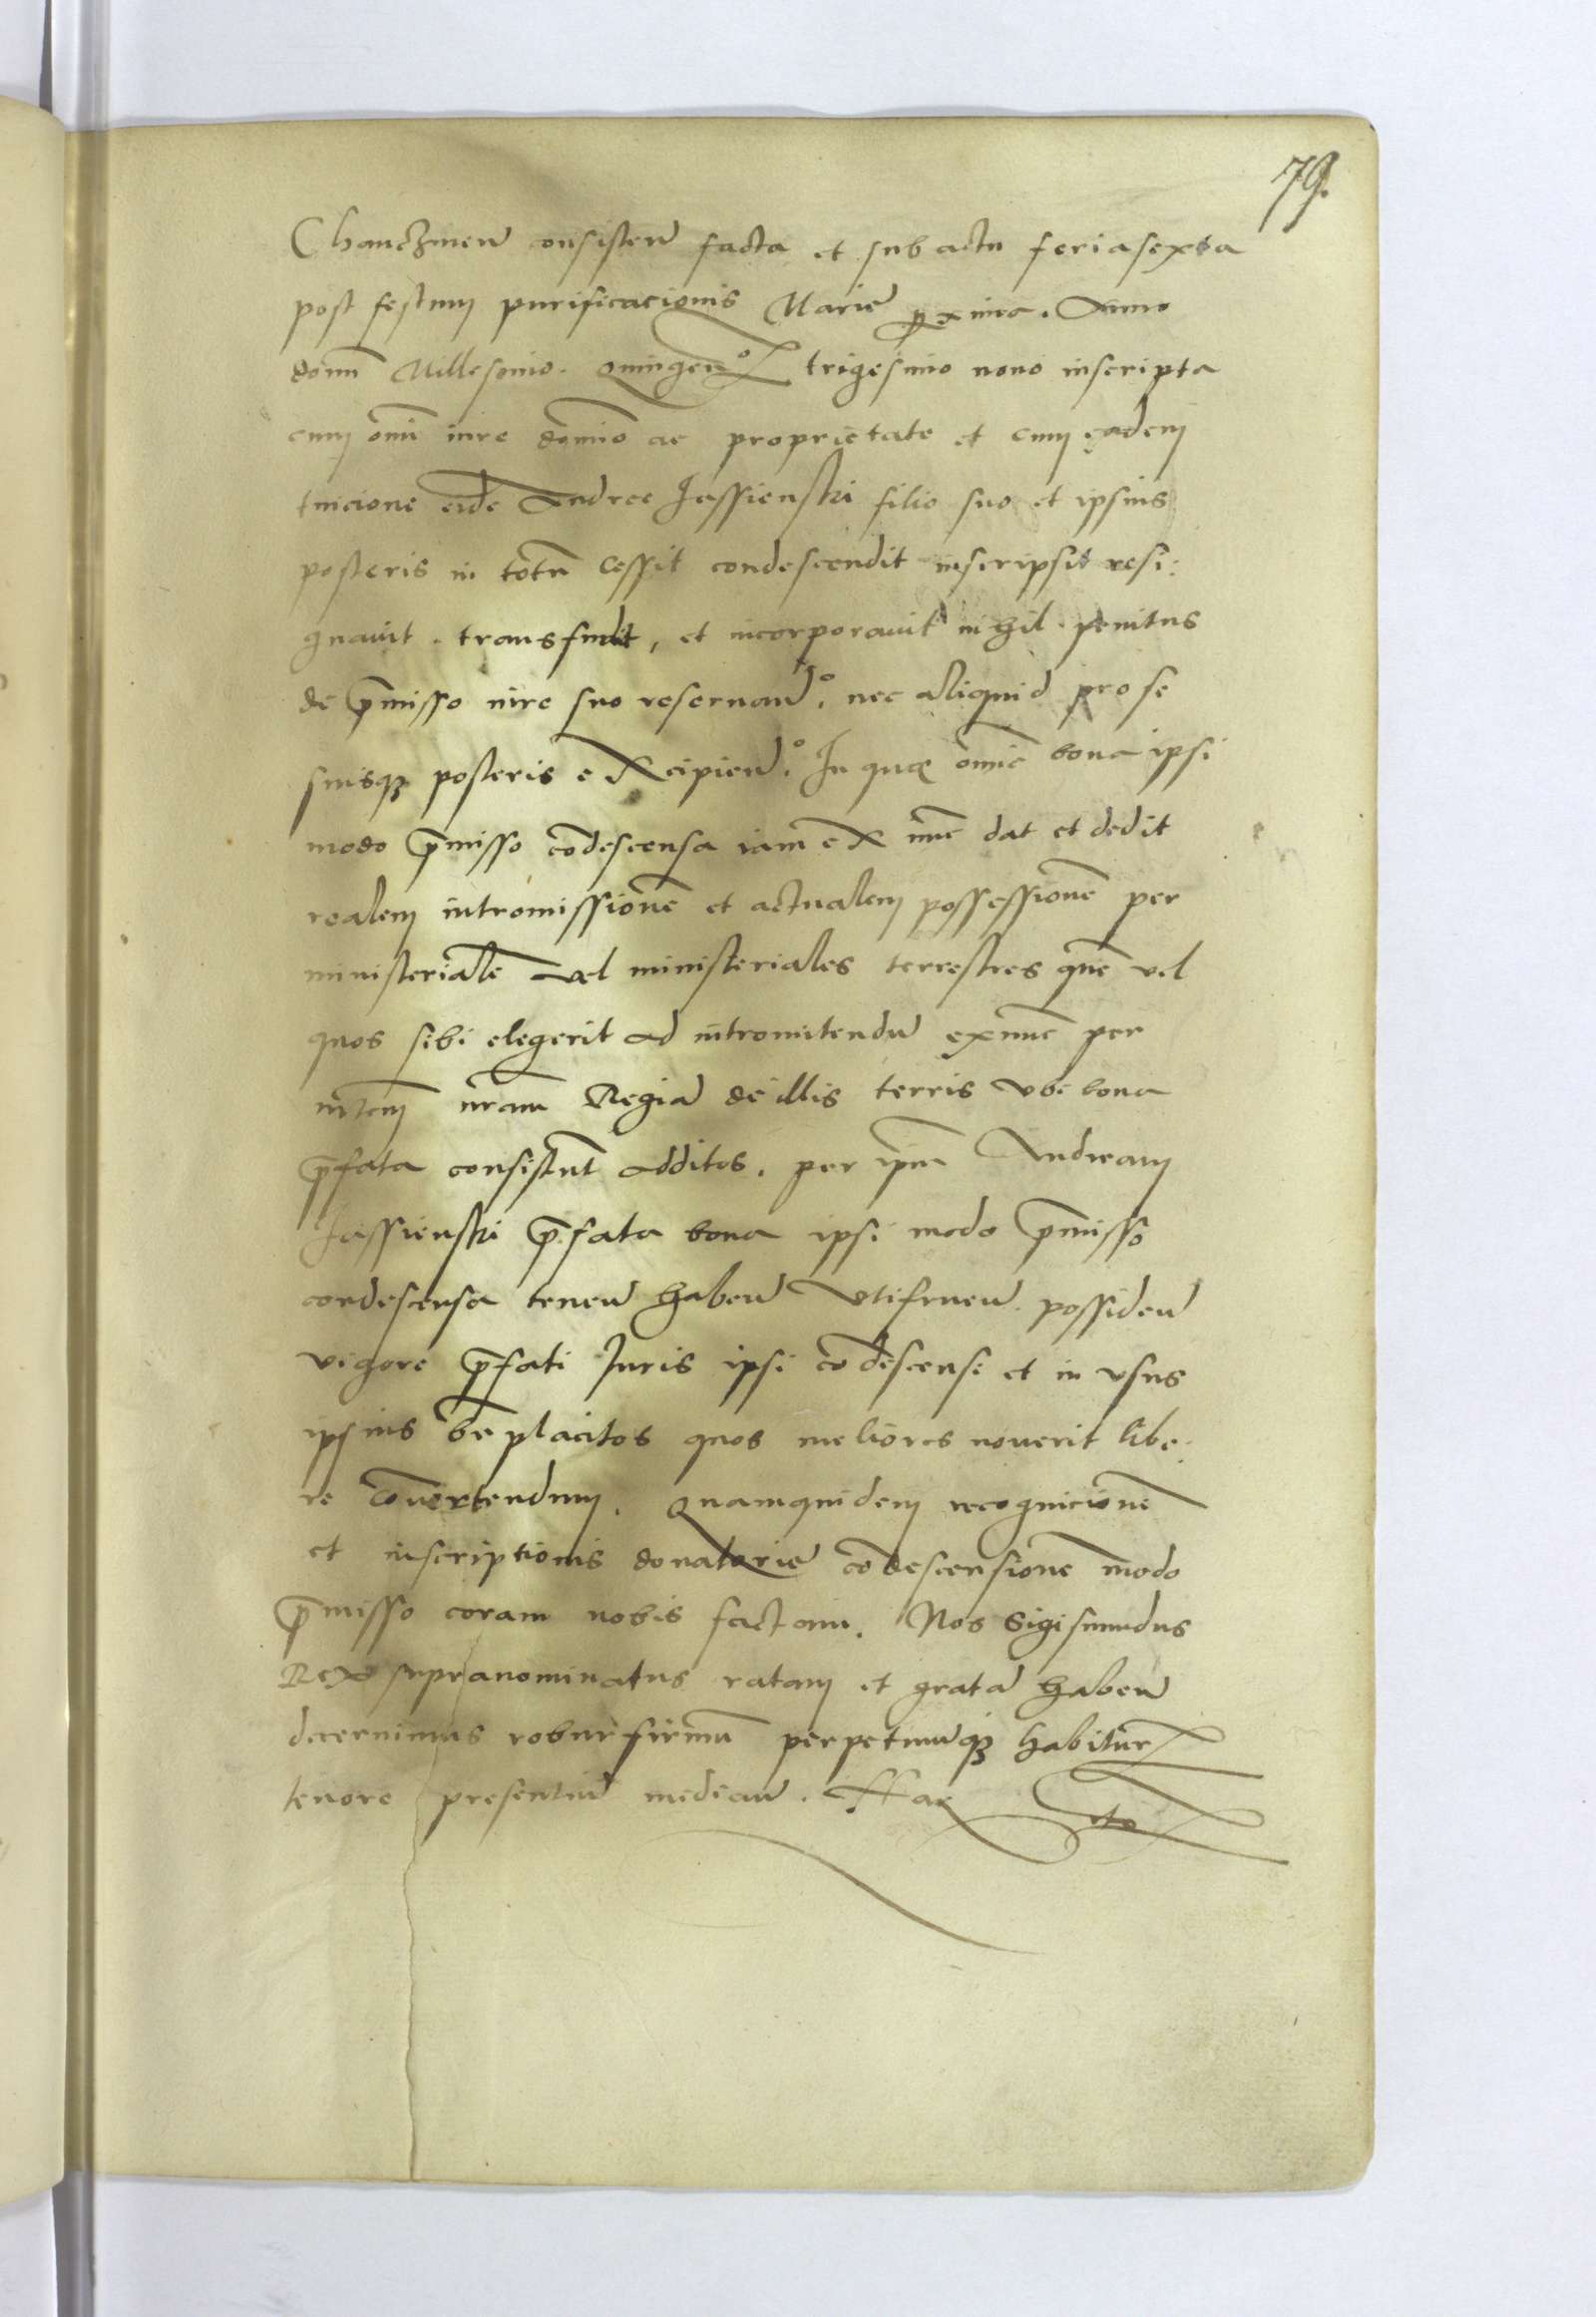 79.
Chanczinen consisten facta et sub actu feria sexta
post festum purificacionis Marie proxima. Anno
domini Millesimo. Quingen° trigesimo nono inscripta
cum omni iure dominio ac proprietate et cum eadem
tuicione eidem Andree Jassienski filio suo et ipsius
posteris in totum cessit condescendit inscripsit resi:
gnavit. transfudit, et incorporavit nihil penitus
de premisso iure suo reservan°. nec aliquid pro se
suisque posteris excipien°. In quae omnia bona ipsi
modo premisso condescensa iam ex nunc dat et dedit
realem intromissionem et actualem possessionem per
ministerialem vel ministeriales terrestres quem vel
quos sibi elegerit ad intromitendum ex nunc per
mtem nram Regiam de illis terris ubi bona
prefata consistunt additos. per ipsum Andream
Jassienski prefata bona ipsi modo premisso
condescensa tenen haben utifruen possiden
vigore prefati Juris ipsi condescensi et in usus
ipsius beneplacitos quos meliores noverit libe:
re convertendum. Quamquidem recognicionem
et inscriptionis donatorie condescensionem modo
premisso coram nobis factam. Nos Sigismundus
Rex supranominatus ratam et gratam haben
decernimus robur firmum perpetuumque habitur
tenore presentium median. Har